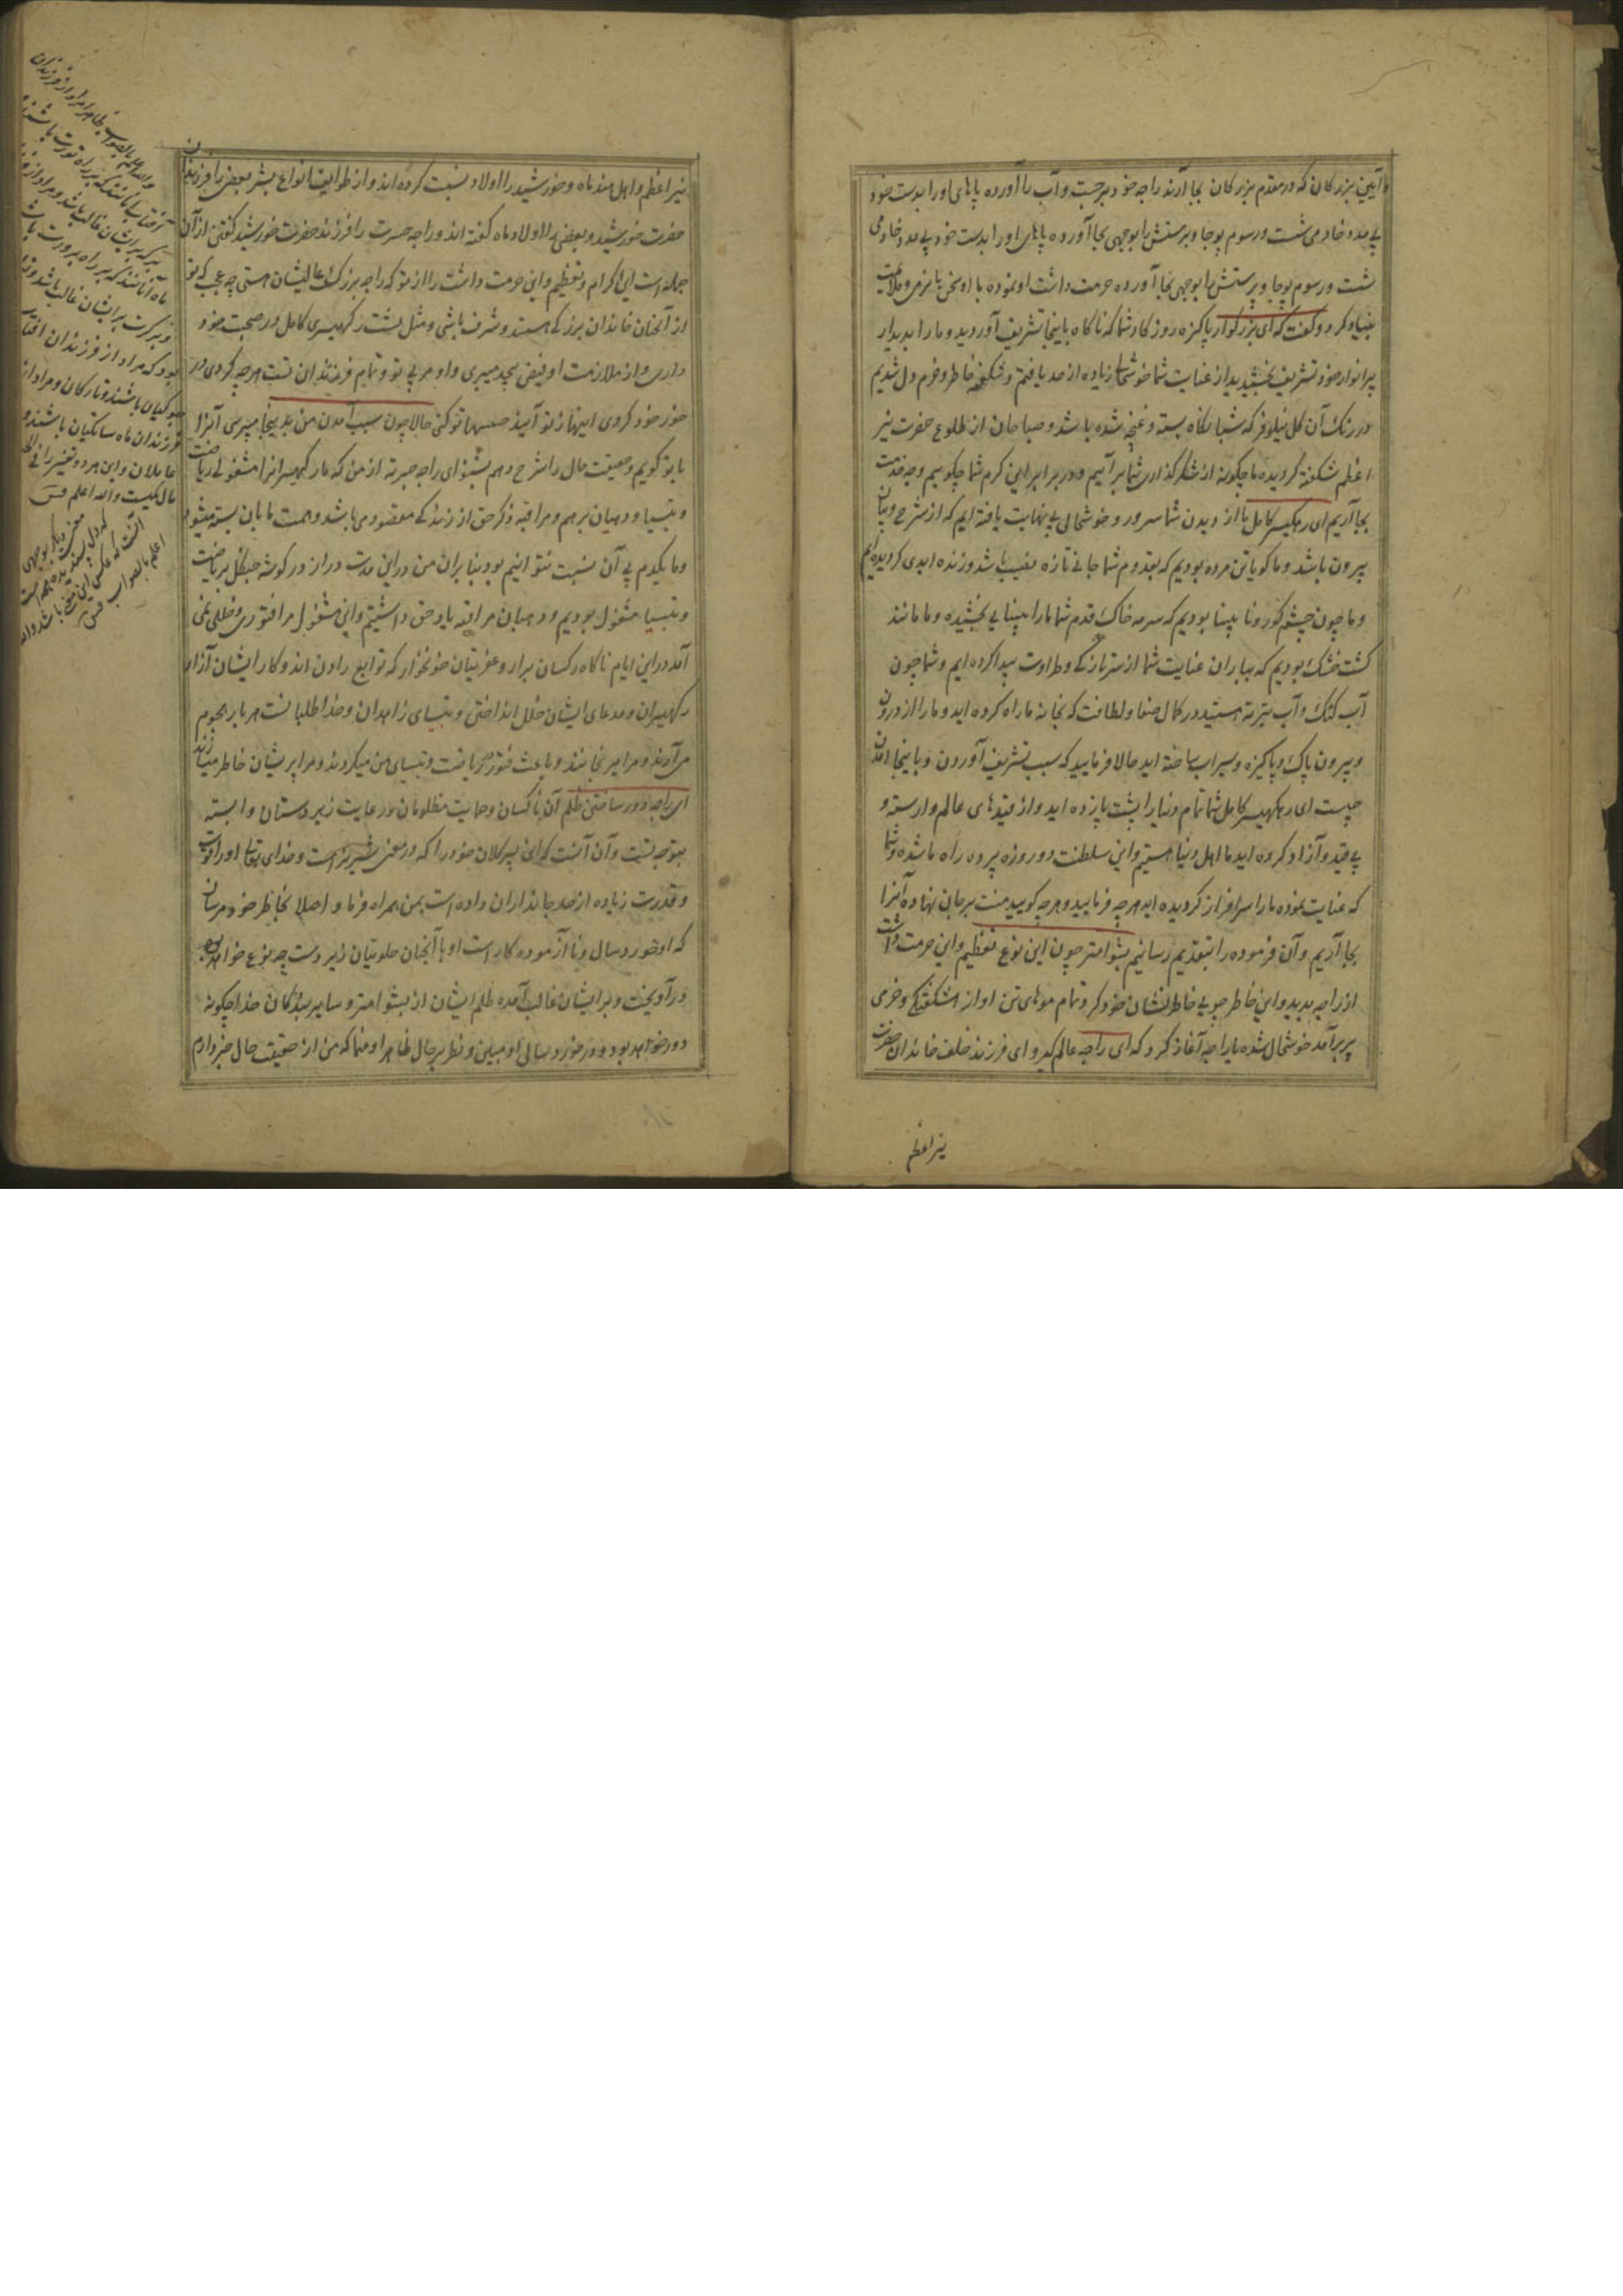 و آیین بزرکان که در مقدم بزرکان بجا آرند راجه خود برجست و آب را آورده پاهای او را بدست خود
بی مدد خادمی شست و رسوم پوجا و پرستش را بوجهی بجا آورده پاهای او را بدست خود بی مدد خادمی
شست و رسوم پوجا و پرستش را بوجهی بجا آورده حرمت داشت او نموده با او سخن بنرمی و ملایمت
بنیاد کرد و کفت که ای بزرکوار پاکیزه روزکار شما که ناکاه باینجا تشریف آوردید و ما را بدیدار
پرانوار خود تشریف بخشیدید از عنایت شما خوشحالی زیاده از حد یافتم و شکفته خاطر و خرم دل شدیم
در رنک آن کل نیلوفر که شبانکاه بسته و غنچه شده باشد و صباحان از طلوع حضرت نیر
اعظم شکفته کردیده ما چکونه از شکرکذاری شما برآییم و در برابر این کرم شما چکوییم و چه خدمت
بجا آریم ای رکهیسر کامل ما از دیدن شما سرور و خوشحالی بی نهایت یافته ایم که از شرح و بیان
بیرون باشد و ما کویا تن مرده بودیم که بقدوم شما جانی تازه نصیب شد و زنده ابدی کردیده ایم
و ما چون چشم کور و نابینا بودیم که سرمه خاک قدم شما ما را بینایی بخشیده و ما مانند
کشت خشک بودیم که بباران عنایت شما از سر تازکی و طراوت پیدا کرده ایم و شما چون
آب کنک و آب تیرته هستید در کمال صفا و لطافت که بخانه ما راه کرده اید و ما را از درون
و بیرون پاک و پاکیزه و سیراب ساخته اید حالا فرمایید که سبب تشریف آوردن و باینجا آمدن
چیست ای رکهیسر کامل شما تمام دنیا را پشت پا زده اید و از قیدهای عالم وارسته و
بی قید و آزاد کرده اید ما اهل دنیا هستیم و این سلطنت دو روزه پرده راه ما شده و شما
که عنایت نموده ما را سرافراز کردیده اید هر چه فرمایید و هر چه کویید منت بر جان نهاده آنرا
بجا آریم و آن فرموده را بتقدیم رسانیم بشوامتر چون این نوع تعظیم و این حرمت داشت
از راجه بدید و این خاطرجویی خاطرنشان خود کرد و تمام موهای تن او از شکفتکی و خرمی
پر برآمد خوشحال شده با راجه آغاز کرد که ای راجه عالم کیر و ای فرزند خلف خاندان حضرت
نیر اعظم
نیر اعظم و اهل هند ماه و خورشید را اولاد نسبت کرده اند و از طوایف انواع بشر بعضی را فرزندان
حضرت خورشید و بعضی را اولاد ماه کفته اند و راجه جسرت را فرزند حضرت خورشید کفتن از آن
جمله است این اکرام و تعظیم و این حرمت داشت را از تو که راجه بزرک عالیشان هستی چه عجب که تو
از آنچنان خاندان بزرکی هستی و شرف باشی و مثل بشست رکهیسری کامل در صحبت خود
داری و از ملازمت او فیض بیحد میبری و او مربی تو و تمام فرزندان تست هر چه کردی در
خور خود کردی اینها از تو آید حالا چون سبب آمدن من بدینجا میپرسی آنرا
با تو کویم و حقیقت حال را شرح دهم بشنو ای راجه جسرت از من که ما رکهیسرانرا مشغولی ریاضت
و تپسیا و دهیان برهم و مراقبه و ذکر حق از زندکی مقصود می باشد و همت ما بآن بسته میشود
و ما یکدم بی آن نسبت نتوانیم بود بنابران من در این مدت دراز در کوشه جنکل بریاضت
و تپسیا مشغول بودیم و دهیان مراقبه یاد حق داشتیم و این مشغولی مرا فتوری و خللی نمی
آمد در این ایام ناکاه رکسان برار و عفریتان خونخوار که توابع راون اند و کار ایشان آزار
رکهیسران و مدعای ایشان خلل انداختن و تپسیای زاهدان و خداطلبانست هر بار هجوم
می آرند و مرا میرنجانند و باعث فتور ریاضت و تپسیای من میکردند و مرا پریشان خاطر میسازند
ای راجه دور ساختن ظلم آن ناکسان و حمایت مظلومان و رعایت زیردستان وابسته
بتوجه تست و آن آنست که این پسر کلان خود را که در معنی شیر نر است و خدای تعالی او را قوت
و قدرت زیاده از حد جانداران داده است بمن همراه فرما و اصلا بخاطر خود مرسان
که او خوردسال و نا آزموده کار است او با آنچنان جلوتیان زبردست چه نوع خواهد
درآویخت و بر ایشان غالب آمده ظلم ایشان از بشوامتر و سایر بندکان خدا چکونه
دور خواهد بود و در خوردسالی او مبین و نظر بر حال ظاهر او منما که من از حقیقت حال خبر دارم
والله اعلم بالصواب ظاهرا مراد از فرزندان
فرزندان ماه سالکان باشند و
عاملان و این هر دو تفسیر را
مآل یکیست والله اعلم
اعلم بالصواب